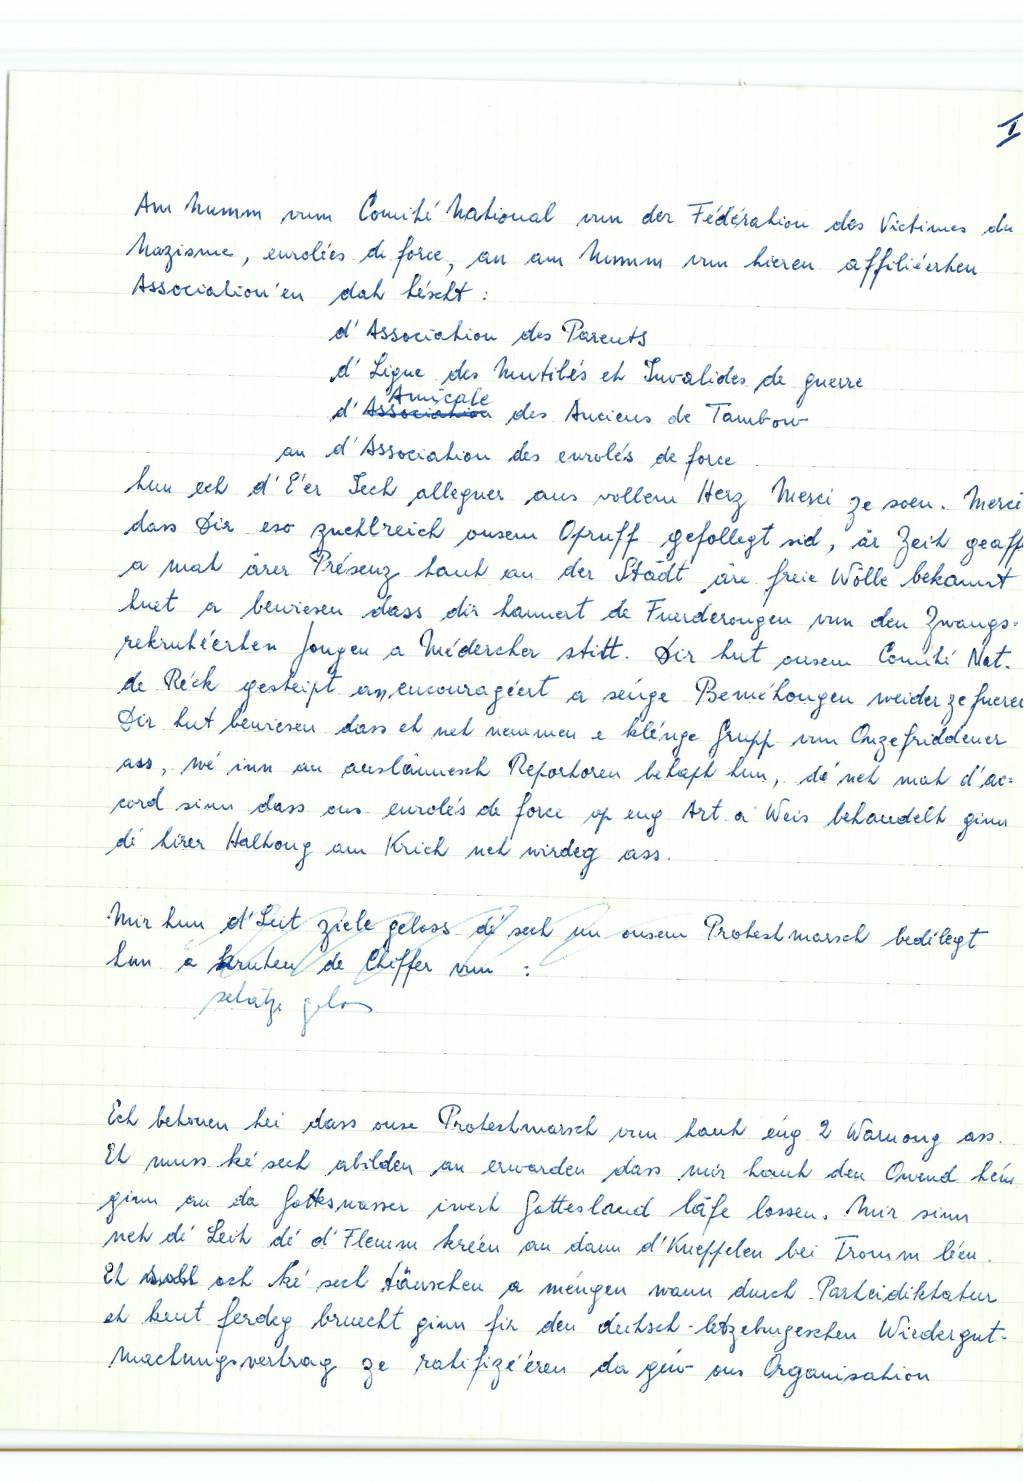 I
Am Numm vum Comité National vun der Fédération des Victimes du
Nazisme, enrolées de force, an am Numm vun hieren affiliéerten
Association'en dat héscht :
d' Association des Parents
d' Ligue des Mutilés et Invalides de guerre
Amicale
d' Association des Anciens de Tambow
an d' Association des enrolés de force
hun ech d' E'er Iech alleguer aus vollem Herz Merci ze soen. Merci
dass Dir eso zuehlreich onsem Opruff gefollegt sid, är Zeit geaff
a mat ärer Présenz haut an der Stâdt äre freie Wölle bekannt
huet a bewiesen dass dir hannert de Fuerderongen vun den Zwangs-
rekrutéerten Jongen a Médercher stitt. Dir hut onsem Comité Nat.
de Réck gesteipt an encouragéert a senge Beméhongen weider ze fueren
Dir hut bewiesen dass et net nemmen e klénge Grupp vun Onzefriddener
ass, wé inn an auslännesch Reportoren behapt hun, dé net mat d'ac-
cord sinn dass ons enrolés de force op eng Art a Weis behandelt ginn
dé hirer Haltong am Krich net wirdeg ass.
Mir hun d'Leit ziele geloss dé sech un onsem Protestmarsch bedélegt
hun a kruten de Chiffer vun :
schätze gelos
Ech betonen hei dass onse Protestmarsch vun haut eng 2 Warnong ass.
Et muss ké sech abilden an erwarden dass mir haut den Owend hém
ginn an da Gotteswasser iwert Gottesland läfe lossen. Mir sinn
net dé Leit dé d'Flemm kréen an dann d'Kneppelen bei Tromm léen.
Et soll och ké sech täuschen a méngen wann durch Parteidiktatur
et keut ferdeg bruecht ginn fir den deitsch-letzeburgeschen Wiedergut-
machungsvertrag ze ratifizéeren da géw ons Organisation